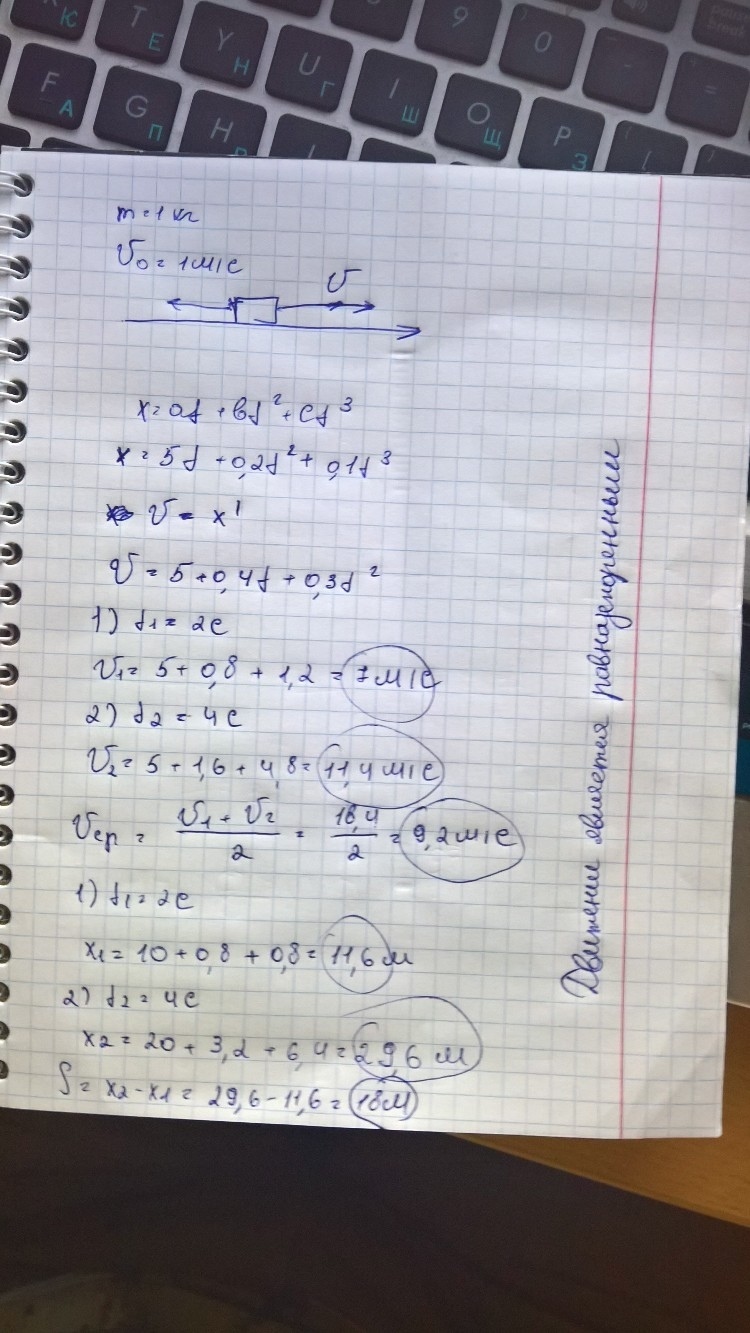 9
T
Е
Y
Н
U
Г
I
Ш
O
Щ
P
З
0
-
=
К
F
А
G
П
H
m=1 кг
V₀ = 1м/с
V
x=at + bt² + ct³
x = 5t + 0,2t² + 0,1t³
V = x'
V = 5 + 0,4t + 0,3t²
1) t₁ = 2c
V₁ = 5 + 0,8 + 1,2 = 7м/с
2) t₂ = 4c
V₂ = 5 + 1,6 + 4,8 = 11,4 м/с
Vср = (V₁ + V₂)/2 = 18,4/2 = 9,2м/с
1) t₁ = 2c
x₁ = 10 + 0,8 + 0,8 = 11,6 м
2) t₂ = 4c
x₂ = 20 + 3,2 + 6,4 = 29,6 м
S = x₂ - x₁ = 29,6 - 11,6 = 18м
Движении является